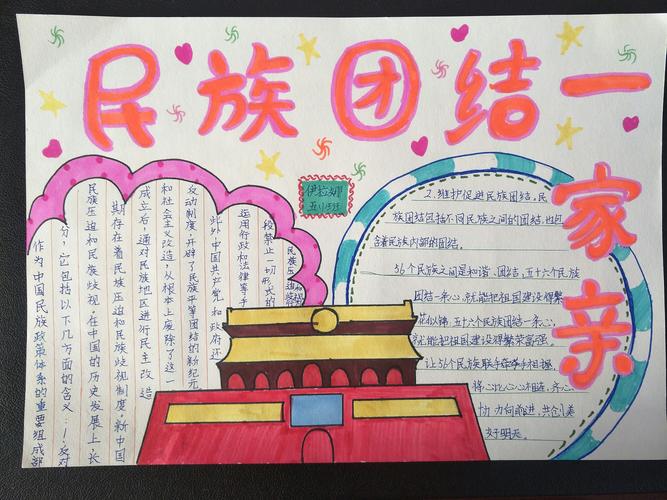 民族团结一
家亲
伊拉娜
作为中国民族政策体系的重要组成部
分,它包括以下几方面的含义:1.反对
民族压迫和民族歧视,在中国的历史发展上,长
期存在着民族压迫和民族歧视制度,新中国
成立后,通对民族地区进行民主改造
和社会主义改造,从根本上废除了这一
反动制度,开辟了民族平等团结的新纪元
此外中国共产党和政府还
运用行政和法律等手
段禁止一切形式的
民族压迫
2.维护促进民族团结,民
族团结包括不同民族之间的团结,也包
含着民族内部的团结。
56个民族之间是和谐、团结,五十六个民族
团结一条心,就能把祖国建设得繁
花似锦,五十六个民族团结一条心,
就能把祖国建设得繁荣富强。
让56个民族联手牵手相握,
将心比心心相连,齐心
协力向前进,共创美
好明天。